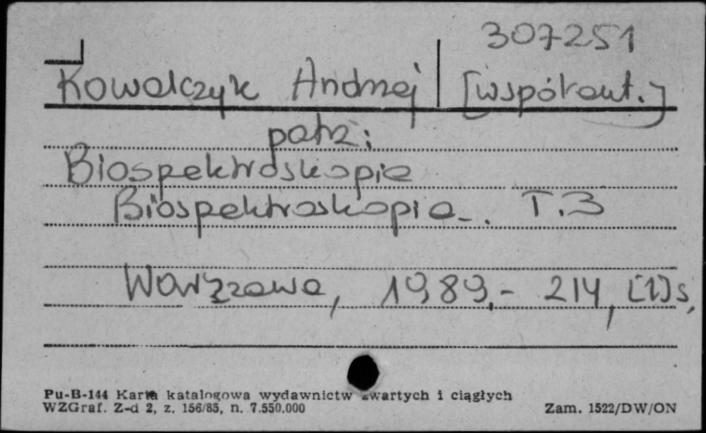 307251
Kowalczyk Andrzej [współaut.]
patrz:
Biospektroskopia
Biospektroskopia. T.3
Warszawa, 1989.- 214, [1]s.
Pu-B-144 Karta katalogowa wydawnictw zwartych i ciągłych
WZGraf. Z-d 2, z. 156/85, n. 7.550.000
Zam. 1522/DW/ON